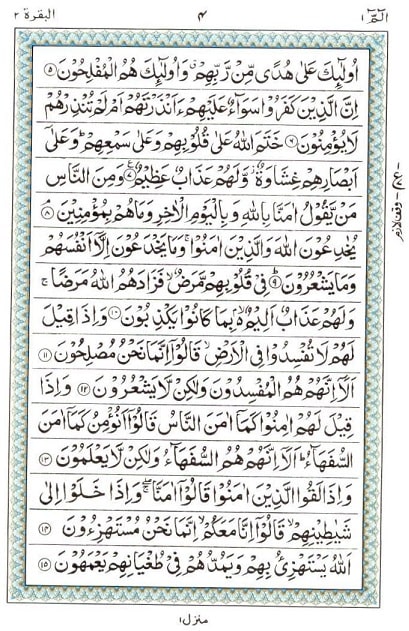 الٓمّٓ ١ ٤ البقرة ٢
اُولٰٓئِكَ عَلٰى هُدًى مِّنْ رَّبِّهِمْ ۗ وَاُولٰٓئِكَ هُمُ الْمُفْلِحُوْنَ ۝٥
اِنَّ الَّذِيْنَ كَفَرُوْا سَوَآءٌ عَلَيْهِمْ ءَاَنْذَرْتَهُمْ اَمْ لَمْ تُنْذِرْهُمْ
لَا يُؤْمِنُوْنَ ۝٦ خَتَمَ اللّٰهُ عَلٰى قُلُوْبِهِمْ وَعَلٰى سَمْعِهِمْ ؕ وَعَلٰٓى
اَبْصَارِهِمْ غِشَاوَةٌ ؗ وَّلَهُمْ عَذَابٌ عَظِيْمٌ ۝٧ وَمِنَ النَّاسِ
مَنْ يَّقُوْلُ اٰمَنَّا بِاللّٰهِ وَبِالْيَوْمِ الْاٰخِرِ وَمَا هُمْ بِمُؤْمِنِيْنَ ۝٨
يُخٰدِعُوْنَ اللّٰهَ وَالَّذِيْنَ اٰمَنُوْا ۚ وَمَا يَخْدَعُوْنَ اِلَّآ اَنْفُسَهُمْ
وَمَا يَشْعُرُوْنَ ۝٩ فِيْ قُلُوْبِهِمْ مَّرَضٌ ۙ فَزَادَهُمُ اللّٰهُ مَرَضًا ۚ
وَلَهُمْ عَذَابٌ اَلِيْمٌ ۙ بِمَا كَانُوْا يَكْذِبُوْنَ ۝١٠ وَاِذَا قِيْلَ
لَهُمْ لَا تُفْسِدُوْا فِى الْاَرْضِ ۙ قَالُوْٓا اِنَّمَا نَحْنُ مُصْلِحُوْنَ ۝١١
اَلَآ اِنَّهُمْ هُمُ الْمُفْسِدُوْنَ وَلٰكِنْ لَّا يَشْعُرُوْنَ ۝١٢ وَاِذَا
قِيْلَ لَهُمْ اٰمِنُوْا كَمَآ اٰمَنَ النَّاسُ قَالُوْٓا اَنُؤْمِنُ كَمَآ اٰمَنَ
السُّفَهَآءُ ؕ اَلَآ اِنَّهُمْ هُمُ السُّفَهَآءُ وَلٰكِنْ لَّا يَعْلَمُوْنَ ۝١٣
وَاِذَا لَقُوا الَّذِيْنَ اٰمَنُوْا قَالُوْٓا اٰمَنَّا ۖۚ وَاِذَا خَلَوْا اِلٰى
شَيٰطِيْنِهِمْ ۙ قَالُوْٓا اِنَّا مَعَكُمْ ۙ اِنَّمَا نَحْنُ مُسْتَهْزِءُوْنَ ۝١٤
اَللّٰهُ يَسْتَهْزِئُ بِهِمْ وَيَمُدُّهُمْ فِيْ طُغْيَانِهِمْ يَعْمَهُوْنَ ۝١٥
منزل ١